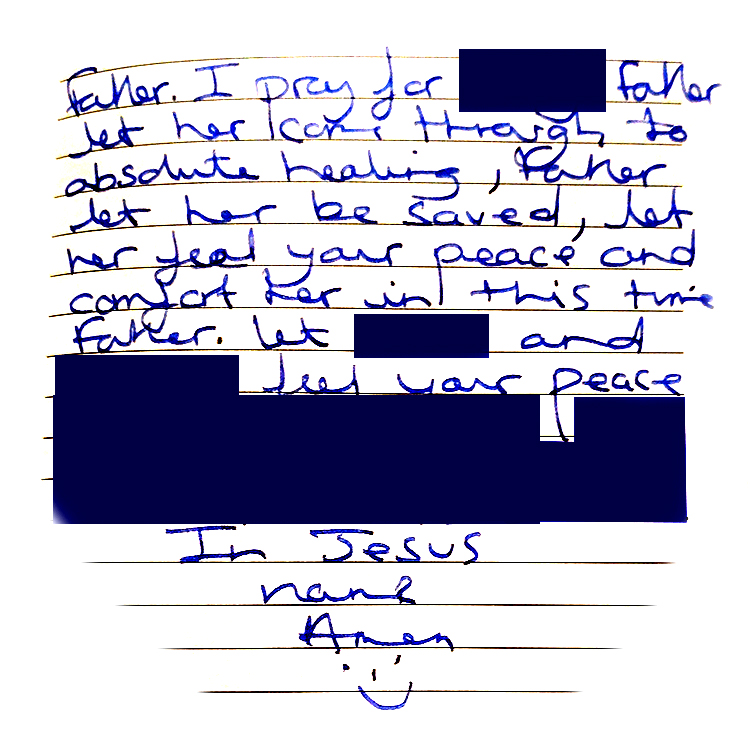 Father. I pray for father
let her come through to
absolute healing, Father
let her be saved, let
her feel your peace and
comfort her in this time
Father. let and
feel your peace
In Jesus
name
Amen